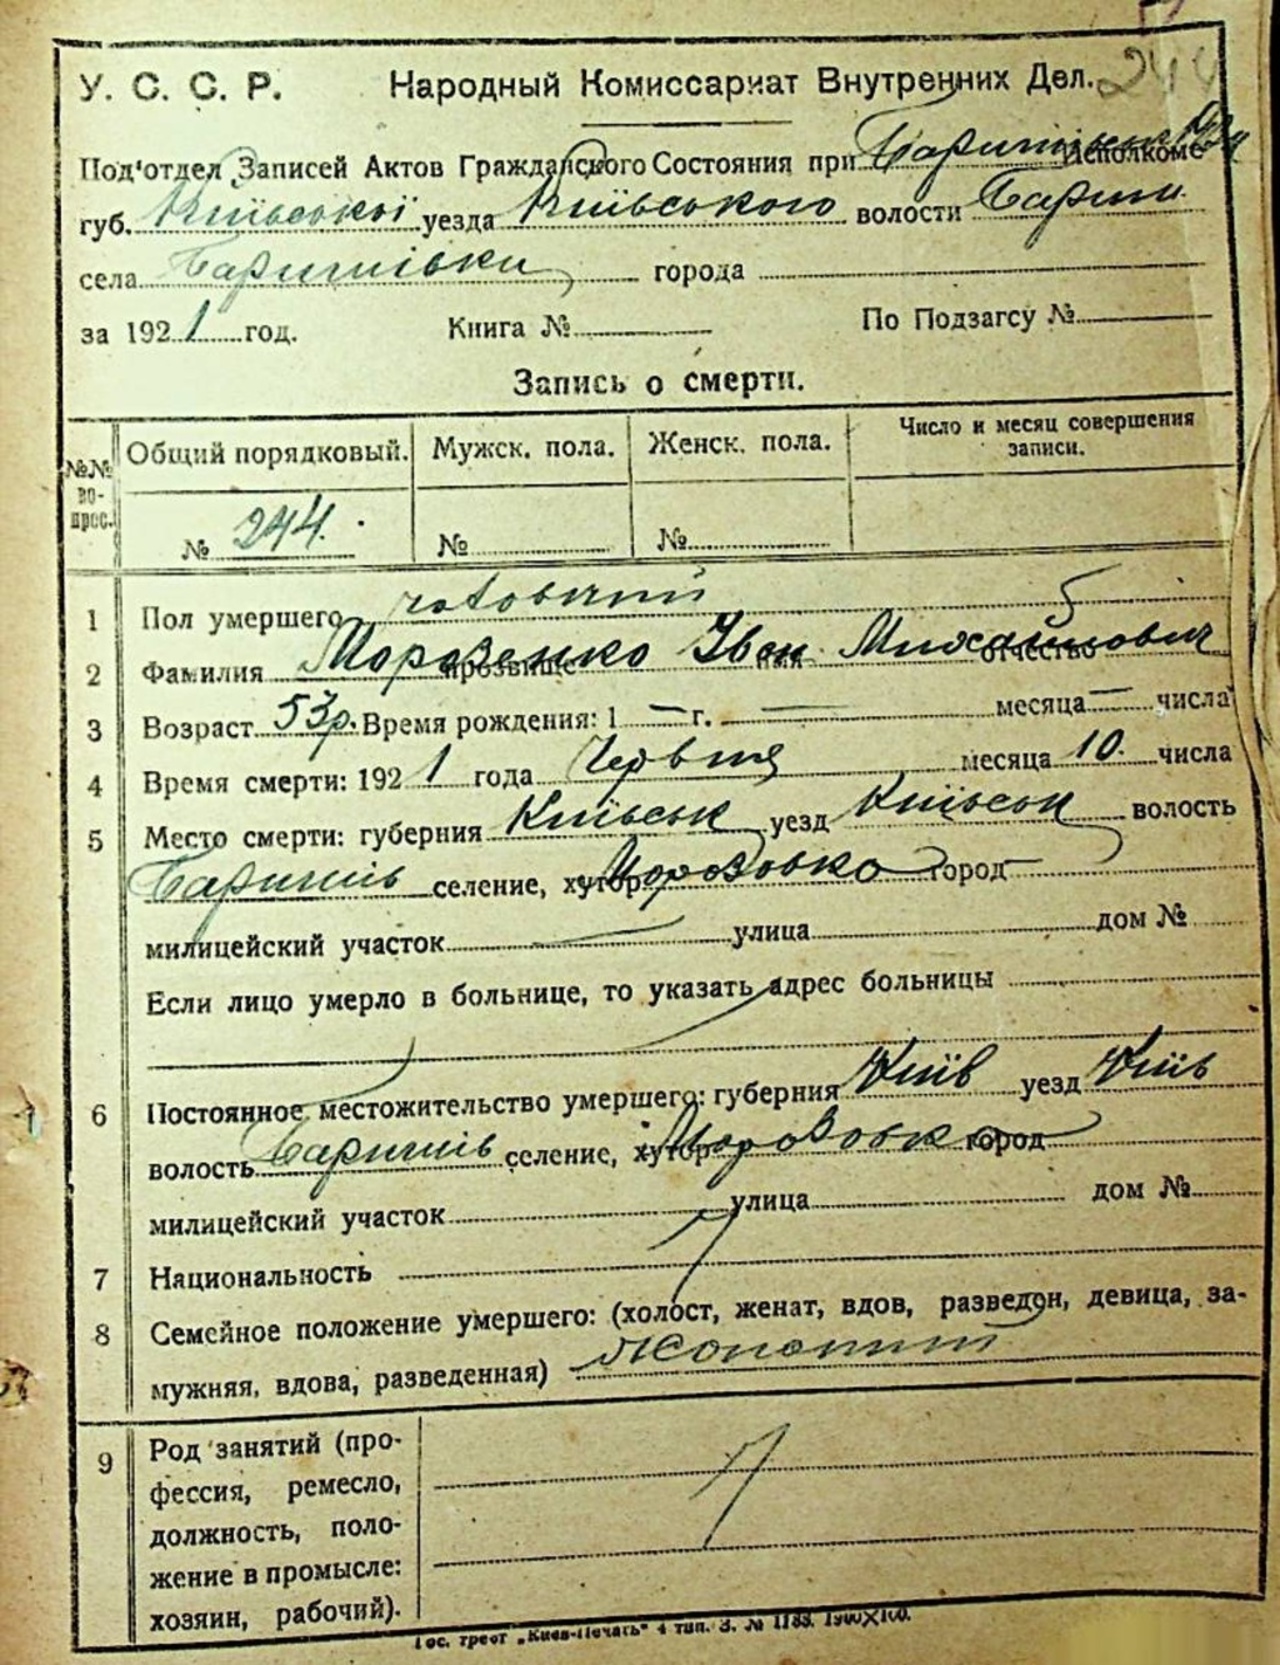 244
У. С. С. Р. Народный Комиссариат Внутренних Дел.
Под'отдел Записей Актов Гражданского Состояния при Исполкоме
губ. Київської уезда Київського волости Бариш.
села Баришівки города
за 1921 год. Книга № По Подзагсу №
Запись о смерти.
№№ во-прос. Общий порядковый. Мужск. пола. Женск. пола. Число и месяц совершения записи.
№ 244. № №
1 Пол умершего чоловічий
2 Фамилия Морозенко прозвище Іван имя Михайлович отчество
3 Возраст 53р. Время рождения: 1 — г. — месяца — числа
4 Время смерти: 1921 года Червня месяца 10. числа
5 Место смерти: губерния Київськ уезд Київськ волость
Баришів селение, хутор Морозовка город
милицейский участок — улица дом №
Если лицо умерло в больнице, то указать адрес больницы
6 Постоянное местожительство умершего: губерния Київ уезд Київ
волость Баришів селение, хутор Морозовка город
милицейский участок улица дом №
7 Национальность
8 Семейное положение умершего: (холост, женат, вдов, разведен, девица, за-
мужняя, вдова, разведенная)
9 Род занятий (про-
фессия, ремесло,
должность, поло-
жение в промысле:
хозяин, рабочий).
Гос. трест „Киев-Печать" 4 тип. З. № 1183. 1900X100.